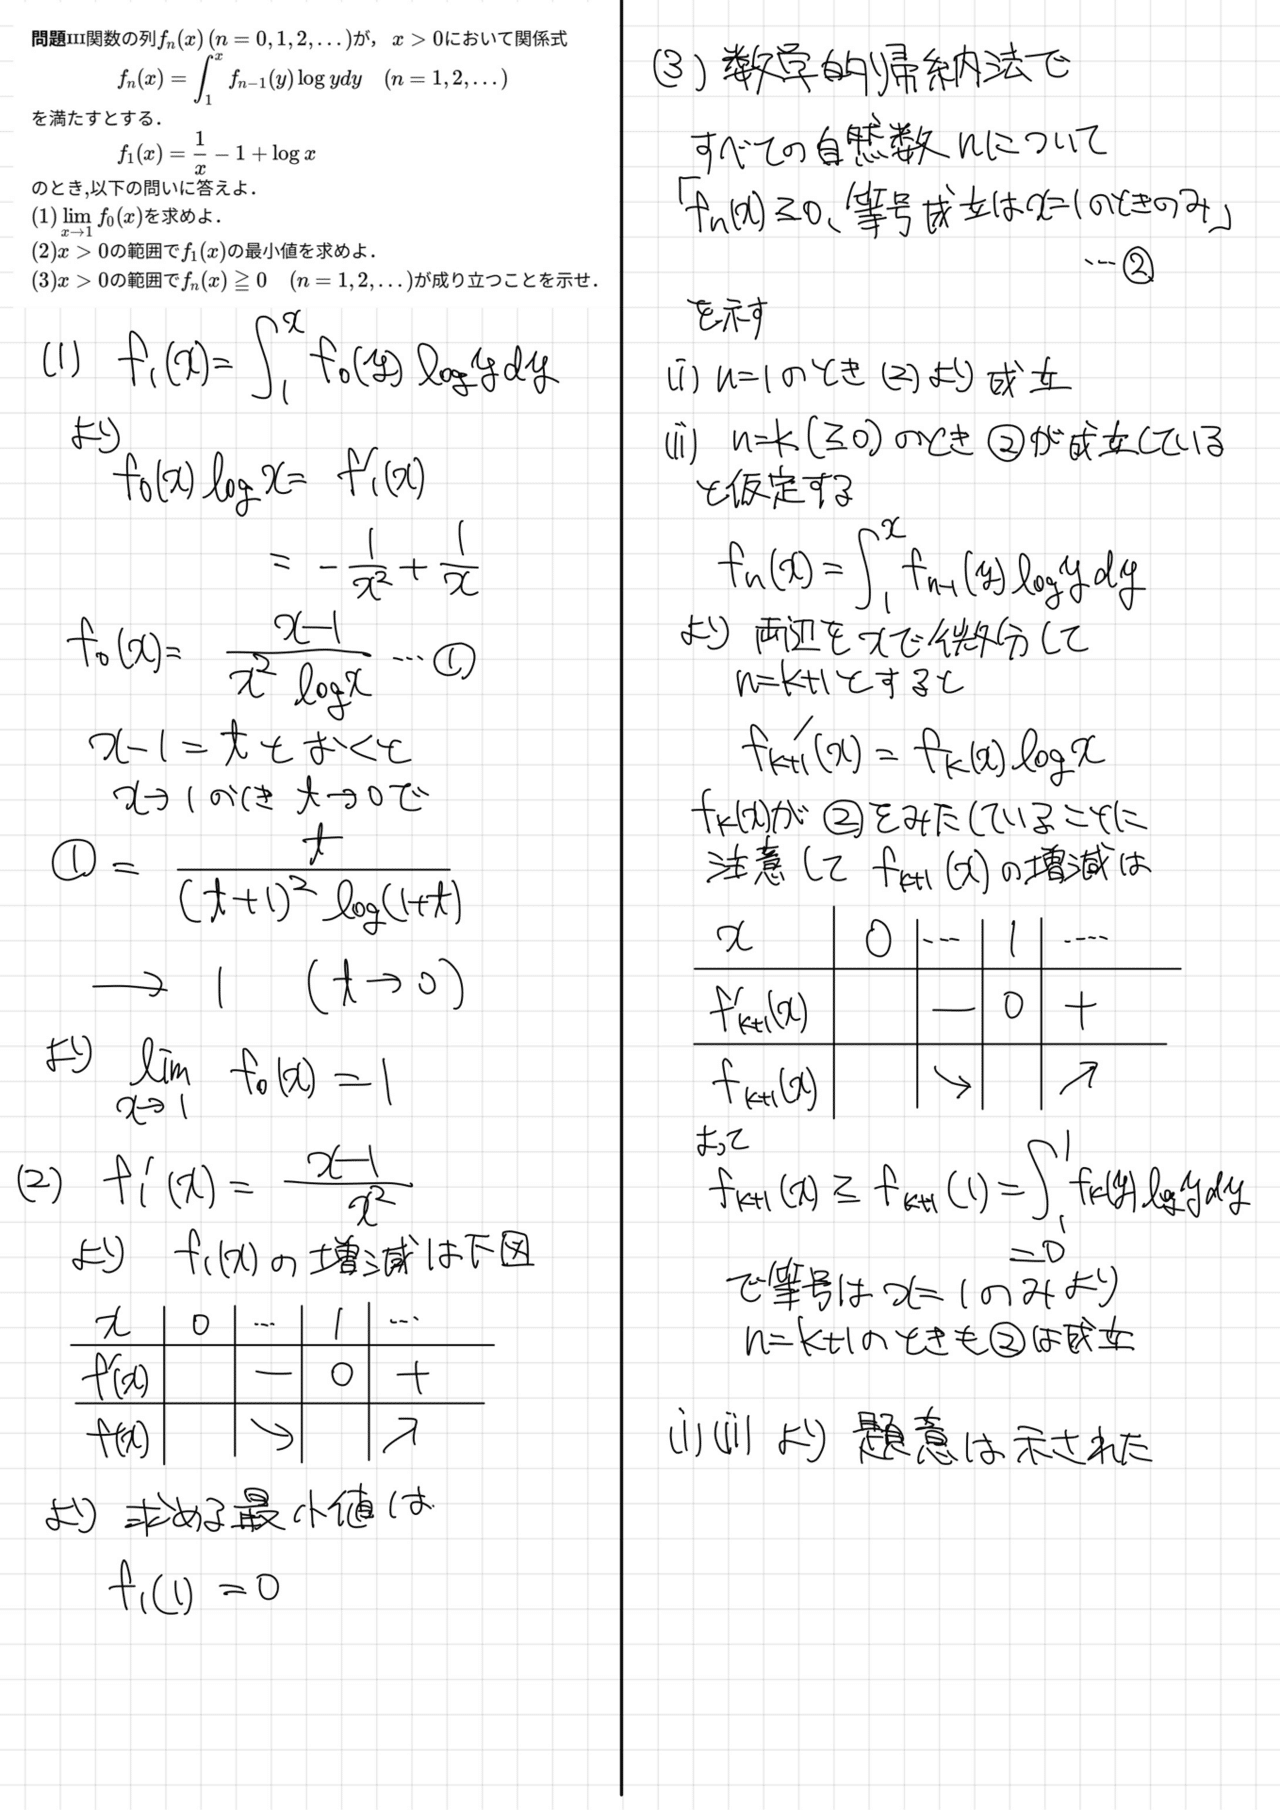 問題III関数の列f_n(x) (n = 0, 1, 2, ...)が, x > 0において関係式
f_n(x) = ∫_1^x f_{n-1}(y) log ydy (n = 1, 2, ...)
を満たすとする.
f_1(x) = 1/x - 1 + log x
のとき,以下の問いに答えよ.
(1) lim_{x→1} f_0(x)を求めよ.
(2)x > 0の範囲でf_1(x)の最小値を求めよ.
(3)x > 0の範囲でf_n(x) ≧ 0 (n = 1, 2, ...)が成り立つことを示せ.
(1) f_1(x) = ∫_1^x f_0(y) log y dy
より
f_0(x) log x = f_1'(x)
= - 1/x^2 + 1/x
f_0(x) = (x-1)/(x^2 log x) … ①
x-1 = t とおくと
x→1 のとき t→0で
① = t/((t+1)^2 log(1+t))
→ 1 (t→0)
より lim_{x→1} f_0(x) = 1
(2) f_1'(x) = (x-1)/x^2
より f_1(x)の増減は下図
x | 0 | … | 1 | …
f'(x) | | - | 0 | +
f(x) | | ↘ | | ↗
より 求める最小値は
f_1(1) = 0
(3) 数学的帰納法で
すべての自然数nについて
「f_n(x) ≥ 0、等号成立はx=1のときのみ」
… ②
を示す
(i) n=1のとき (2)より 成立
(ii) n=k (≥0) のとき ②が成立している
と仮定する
f_n(x) = ∫_1^x f_{n-1}(y) log y dy
より 両辺をxで微分して
n=k+1とすると
f_{k+1}'(x) = f_k(x) log x
f_k(x)が ②をみたしていることに
注意して f_{k+1}(x)の増減は
x | 0 | … | 1 | …
f'_{k+1}(x) | | - | 0 | +
f_{k+1}(x) | | ↘ | | ↗
よって
f_{k+1}(x) ≥ f_{k+1}(1) = ∫_1^1 f_k(y) log y dy
= 0
で等号は x=1のみより
n=k+1のときも②は成立
(i)(ii) より 題意は示された